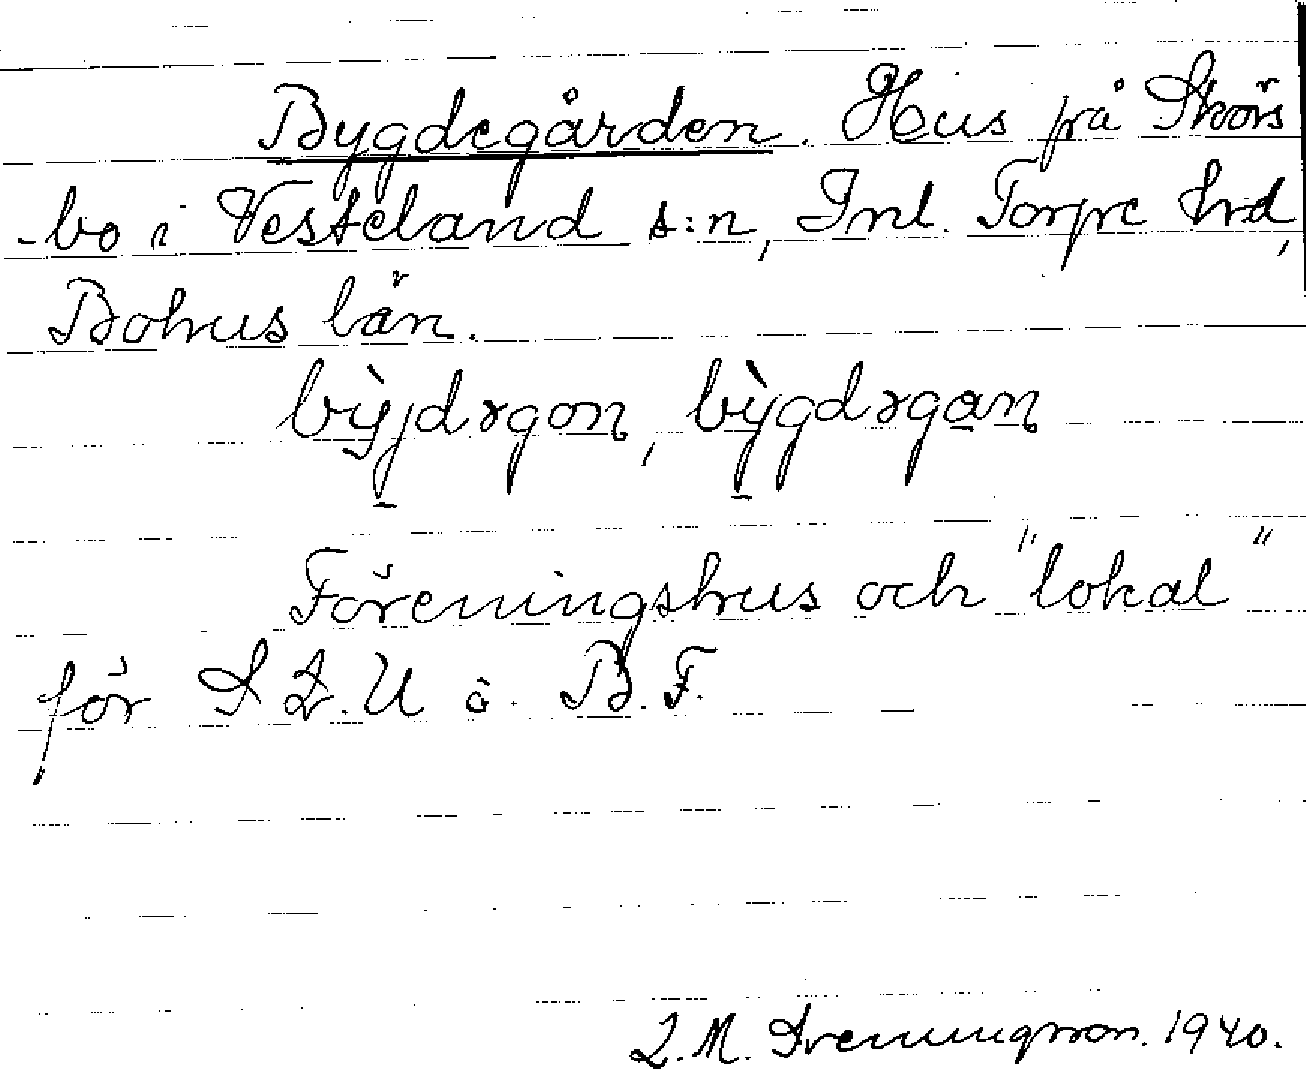 Bygdegården. Hus på Skörs
-bo i Vesteland s:n, Inl. Torpe hrd,
Bohus län.
bỳjdəgon, bỳgdəgan
Föreningshus och "lokal"
för S L.U o. B.F.
L.M. Svenungsson. 1940.